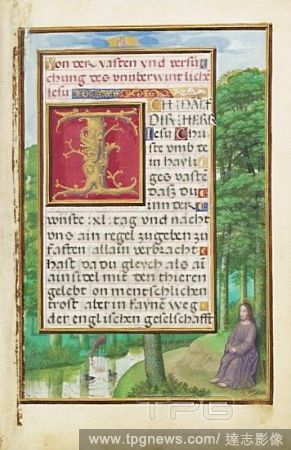 Von der vasten vnd versu
chung des vnüberwintliche
iesu
ICH DANCK
DIR HERR
Jesu Chri
ste vmb de
in hayli
ges vaste
dasz du
inn der
wüste .xl. tag vnd nacht
vns ain regel zugeben zu
fasten allain verbracht
hast da du gleych als ai
ainsidel mit den thieren
gelebt on mentschlichen
trost aber in kayne weg
der englischen geselschafft
TPG
www.tpgnews.com / 達志影像